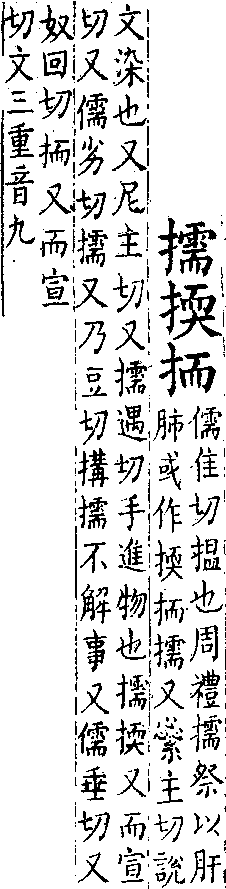 擩擩抐
儒隹切揾也周禮擩祭以肝
肺或作㨎抐擩又縈主切說
文染也又尼主切又擩遇切手進物也擩㨎又而宣
切又儒劣切擩又乃豆切搆擩不解事又儒垂切又
奴回切抐又而宣
切文三重音九